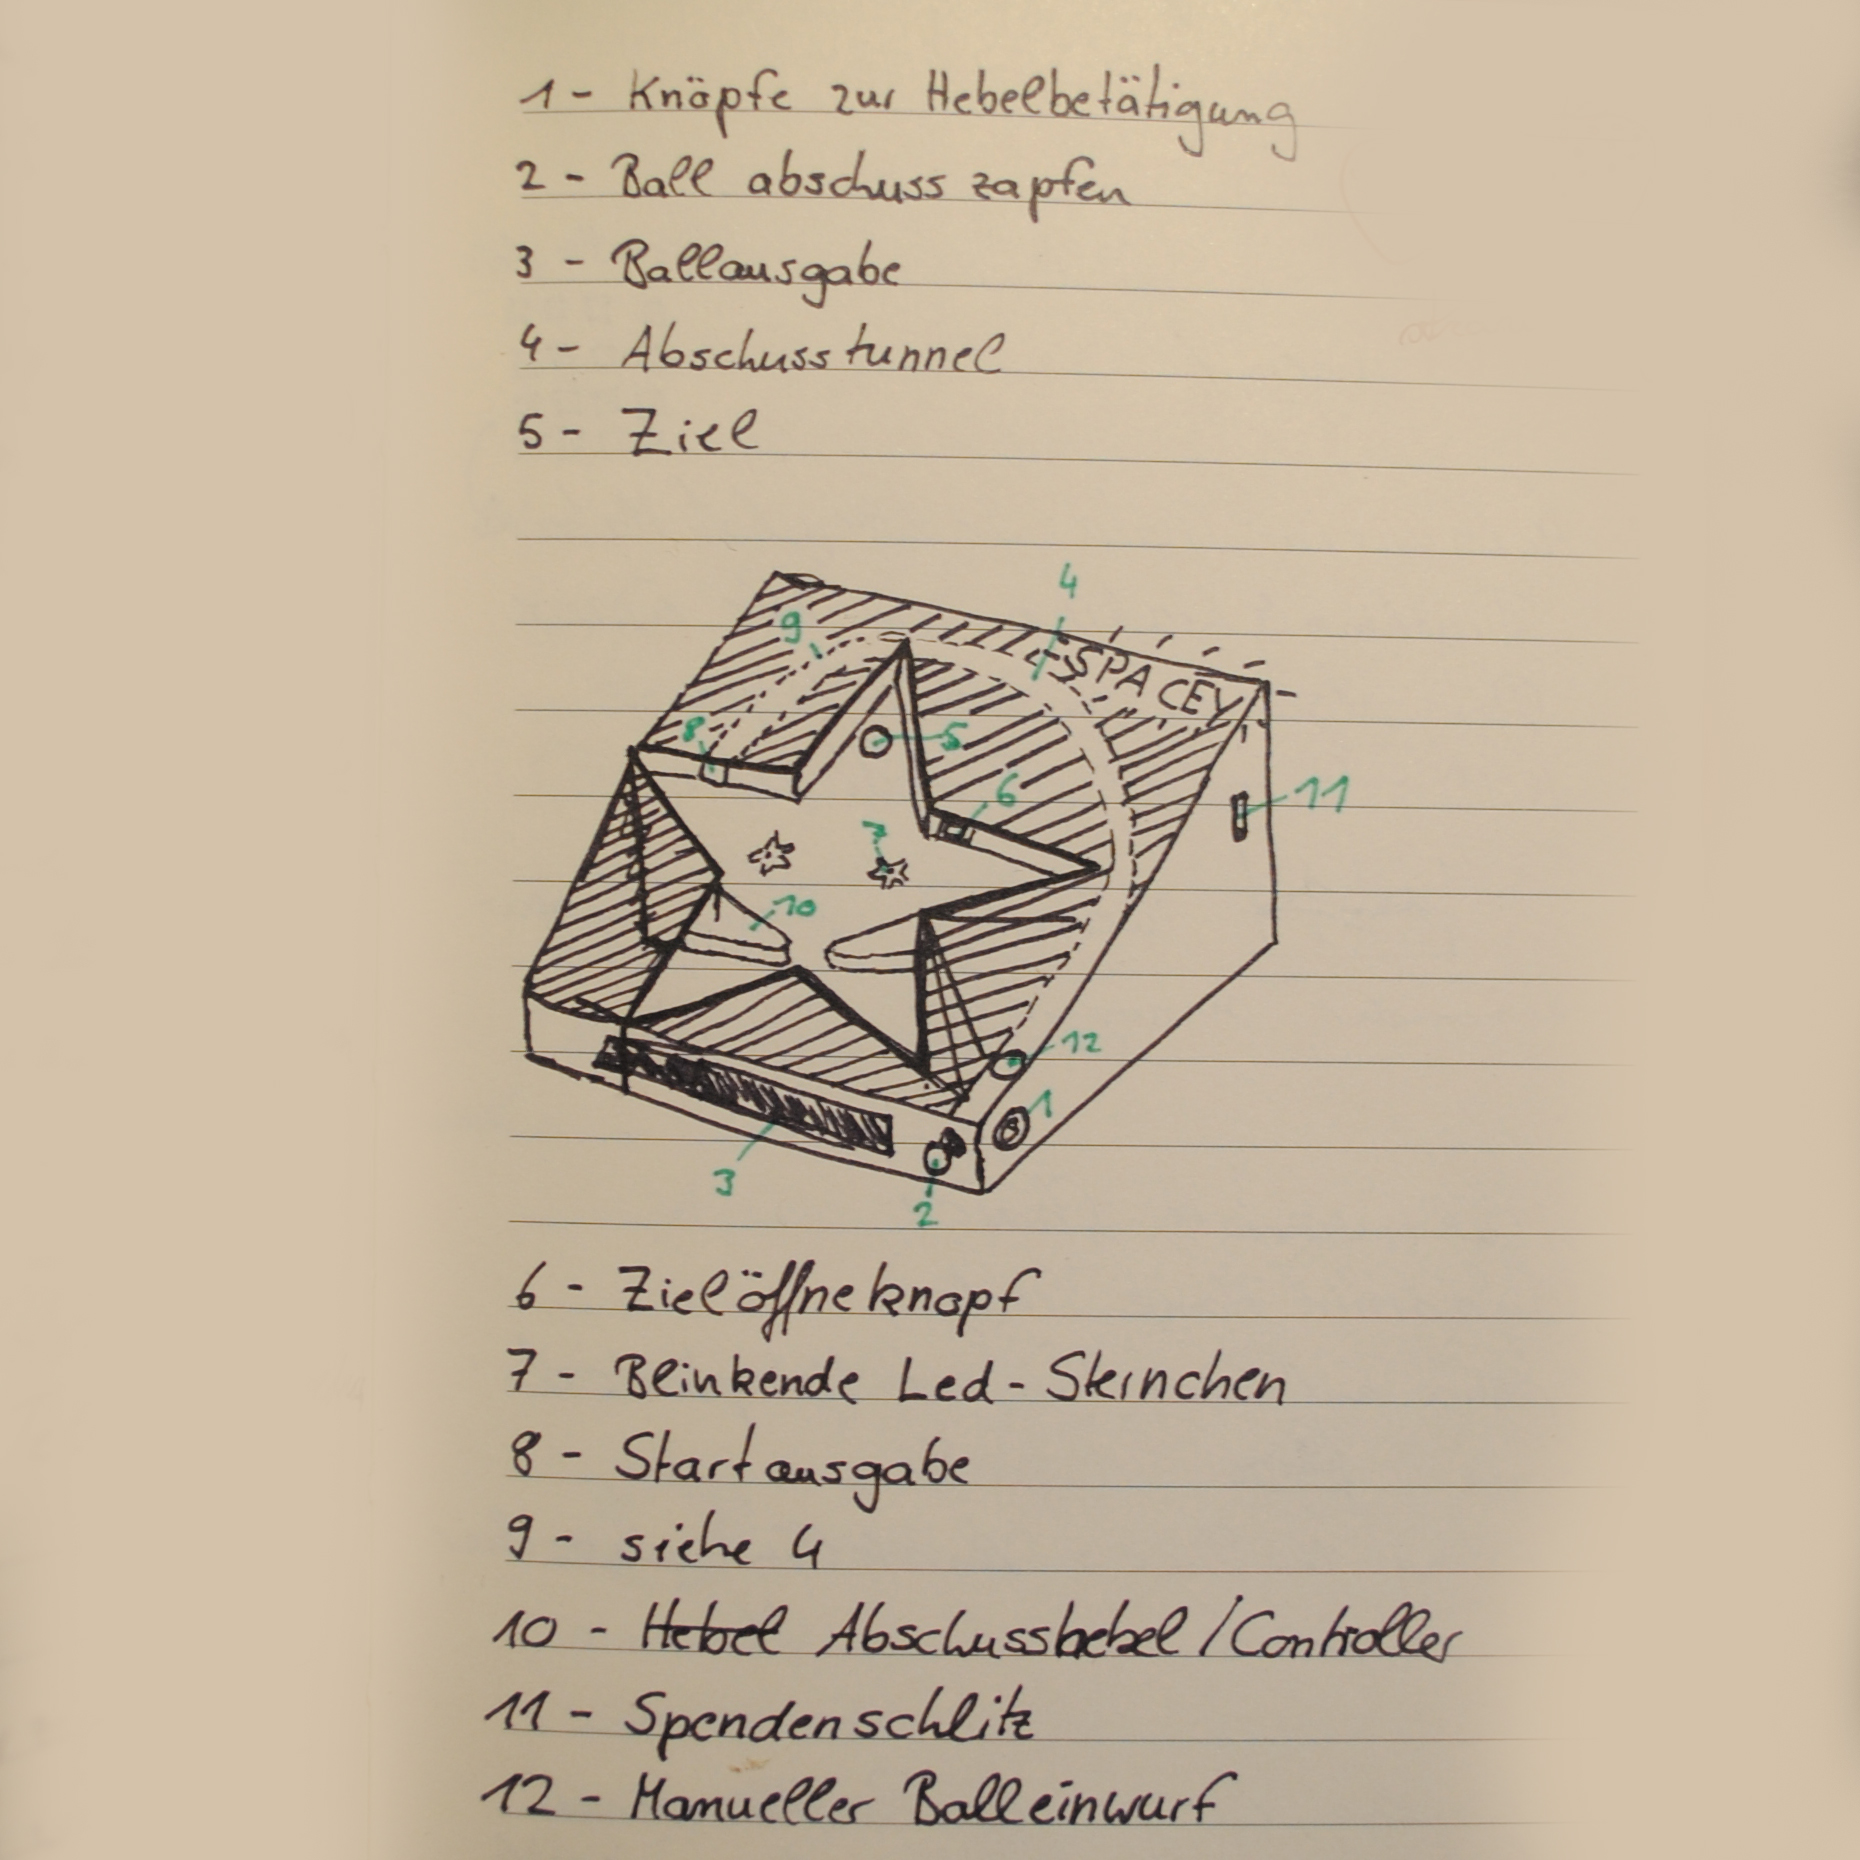 1 - Knöpfe zur Hebelbetätigung
2 - Ball abschuss zapfen
3 - Ballausgabe
4 - Abschusstunnel
5 - Ziel
4
9
SPACEY
8
5
6
11
7
10
12
1
3
2
6 - Zielöffneknopf
7 - Blinkende Led-Sternchen
8 - Startausgabe
9 - siehe 4
10 - Hebel Abschusshebel/Controller
11 - Spendenschlitz
12 - Manueller Balleinwurf